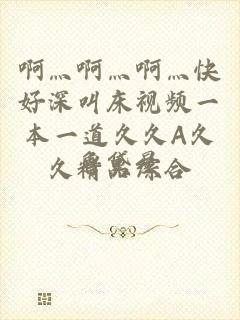 啊灬啊灬啊灬快
好深叫床视频一
本一道久久A久
久精品综合